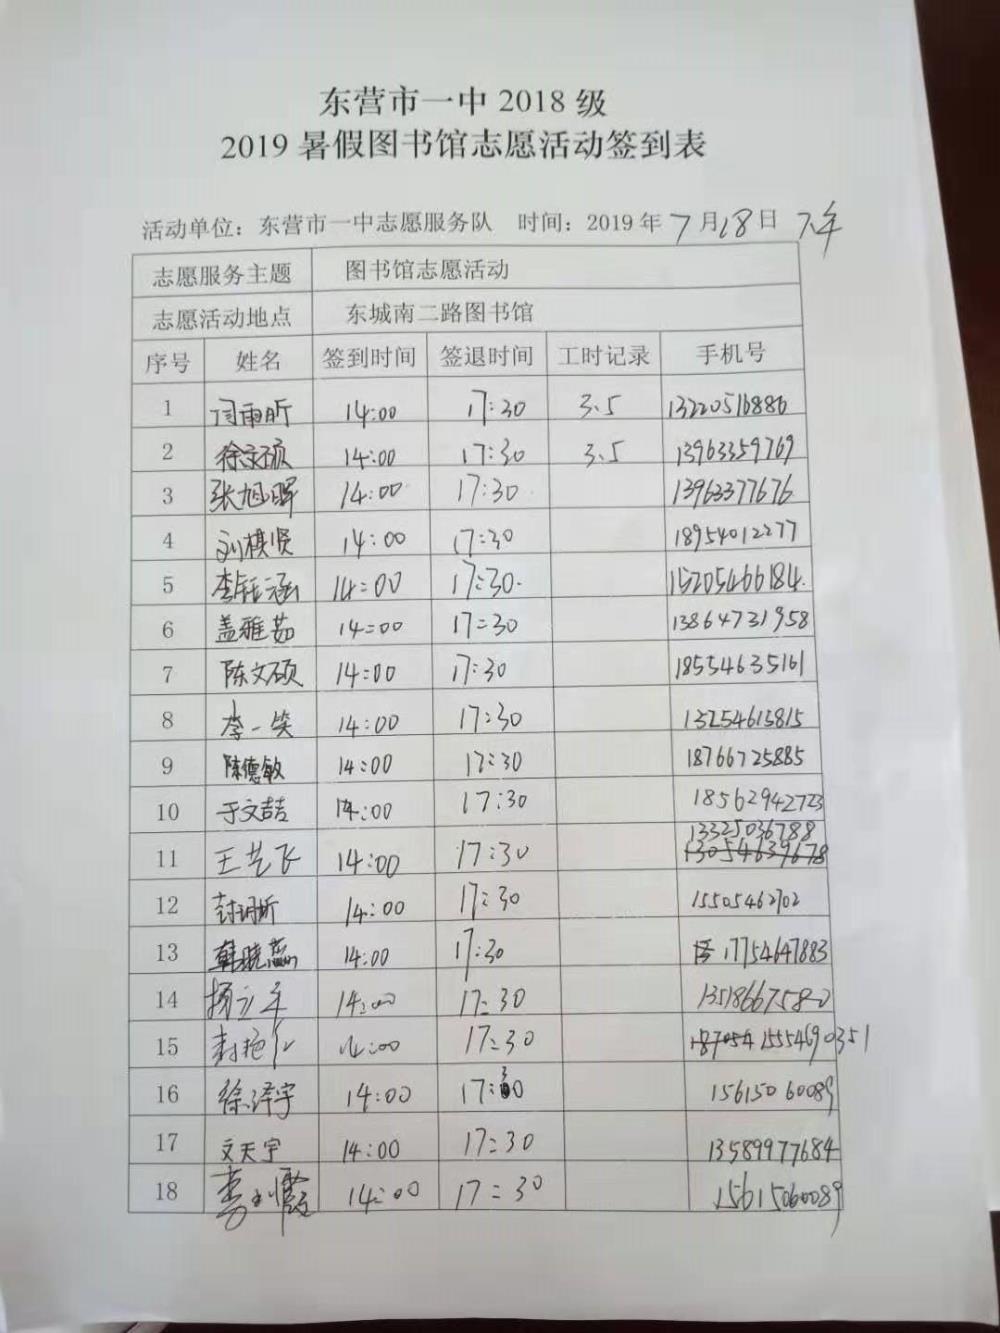 东营市一中 2018 级
2019 暑假图书馆志愿活动签到表
活动单位：东营市一中志愿服务队 时间：2019 年 7 月 18 日 下午
志愿服务主题 图书馆志愿活动
志愿活动地点 东城南二路图书馆
序号 姓名 签到时间 签退时间 工时记录 手机号
1 闫雨昕 14:00 17:30 3.5 13220516886
2 徐文硕 14:00 17:30 3.5 13963359769
3 张旭晖 14:00 17:30 13963377676
4 刘棋贤 14:00 17:30 18954012277
5 李钰涵 14:00 17:30 15205466184
6 盖雅茹 14:00 17:30 13864731958
7 陈文硕 14:00 17:30 18554635161
8 李一笑 14:00 17:30 13254613815
9 陈德敏 14:00 17:30 18766725885
10 于文喆 14:00 17:30 18562942723
13325036788
11 王艺飞 14:00 17:30 13054639678
12 14:00 17:30 15505462702
13 韩晓蕊 14:00 17:30 17754647883
14 杨立军 14:00 17:30 13518667580
15 14:00 17:30 15554690351
16 徐泽宇 14:00 17:30 15615060089
17 文天宇 14:00 17:30 13589977684
18 14:00 17:30 15615060089